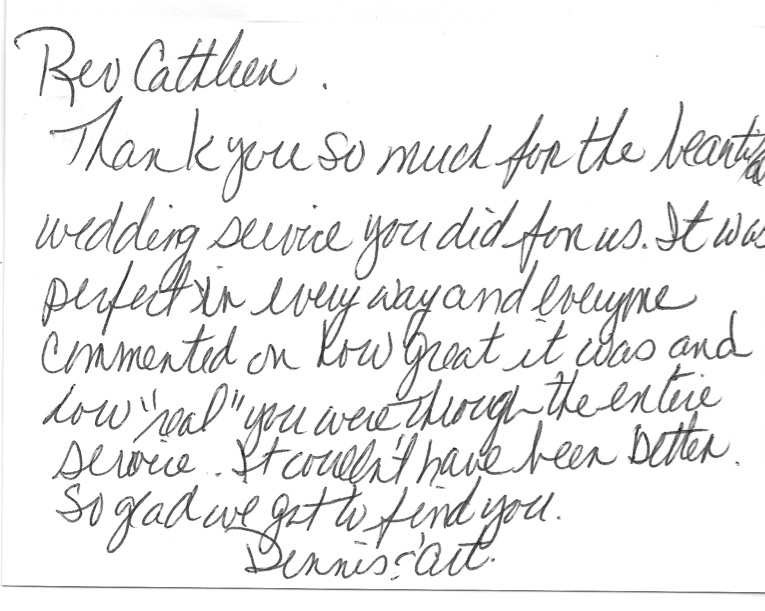 Rev Cathleen.
Thank you so much for the beautiful
wedding service you did for us. It was
perfect in every way and everyone
commented on how great it was and
how "real" you were through the entire
service. It couldn't have been better.
So glad we got to find you.
Dennis & Art.